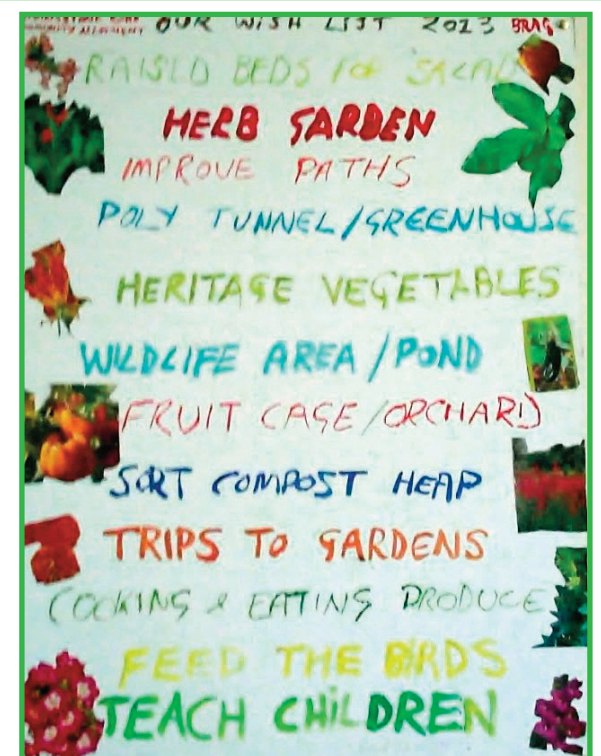 OUR WISH LIST 2013 BRAG
RAISED BEDS FOR SALAD
HERB GARDEN
IMPROVE PATHS
POLY TUNNEL/GREENHOUSE
HERITAGE VEGETABLES
WILDLIFE AREA/POND
FRUIT CAGE/ORCHARD
SORT COMPOST HEAP
TRIPS TO GARDENS
COOKING & EATING PRODUCE
FEED THE BIRDS
TEACH CHILDREN